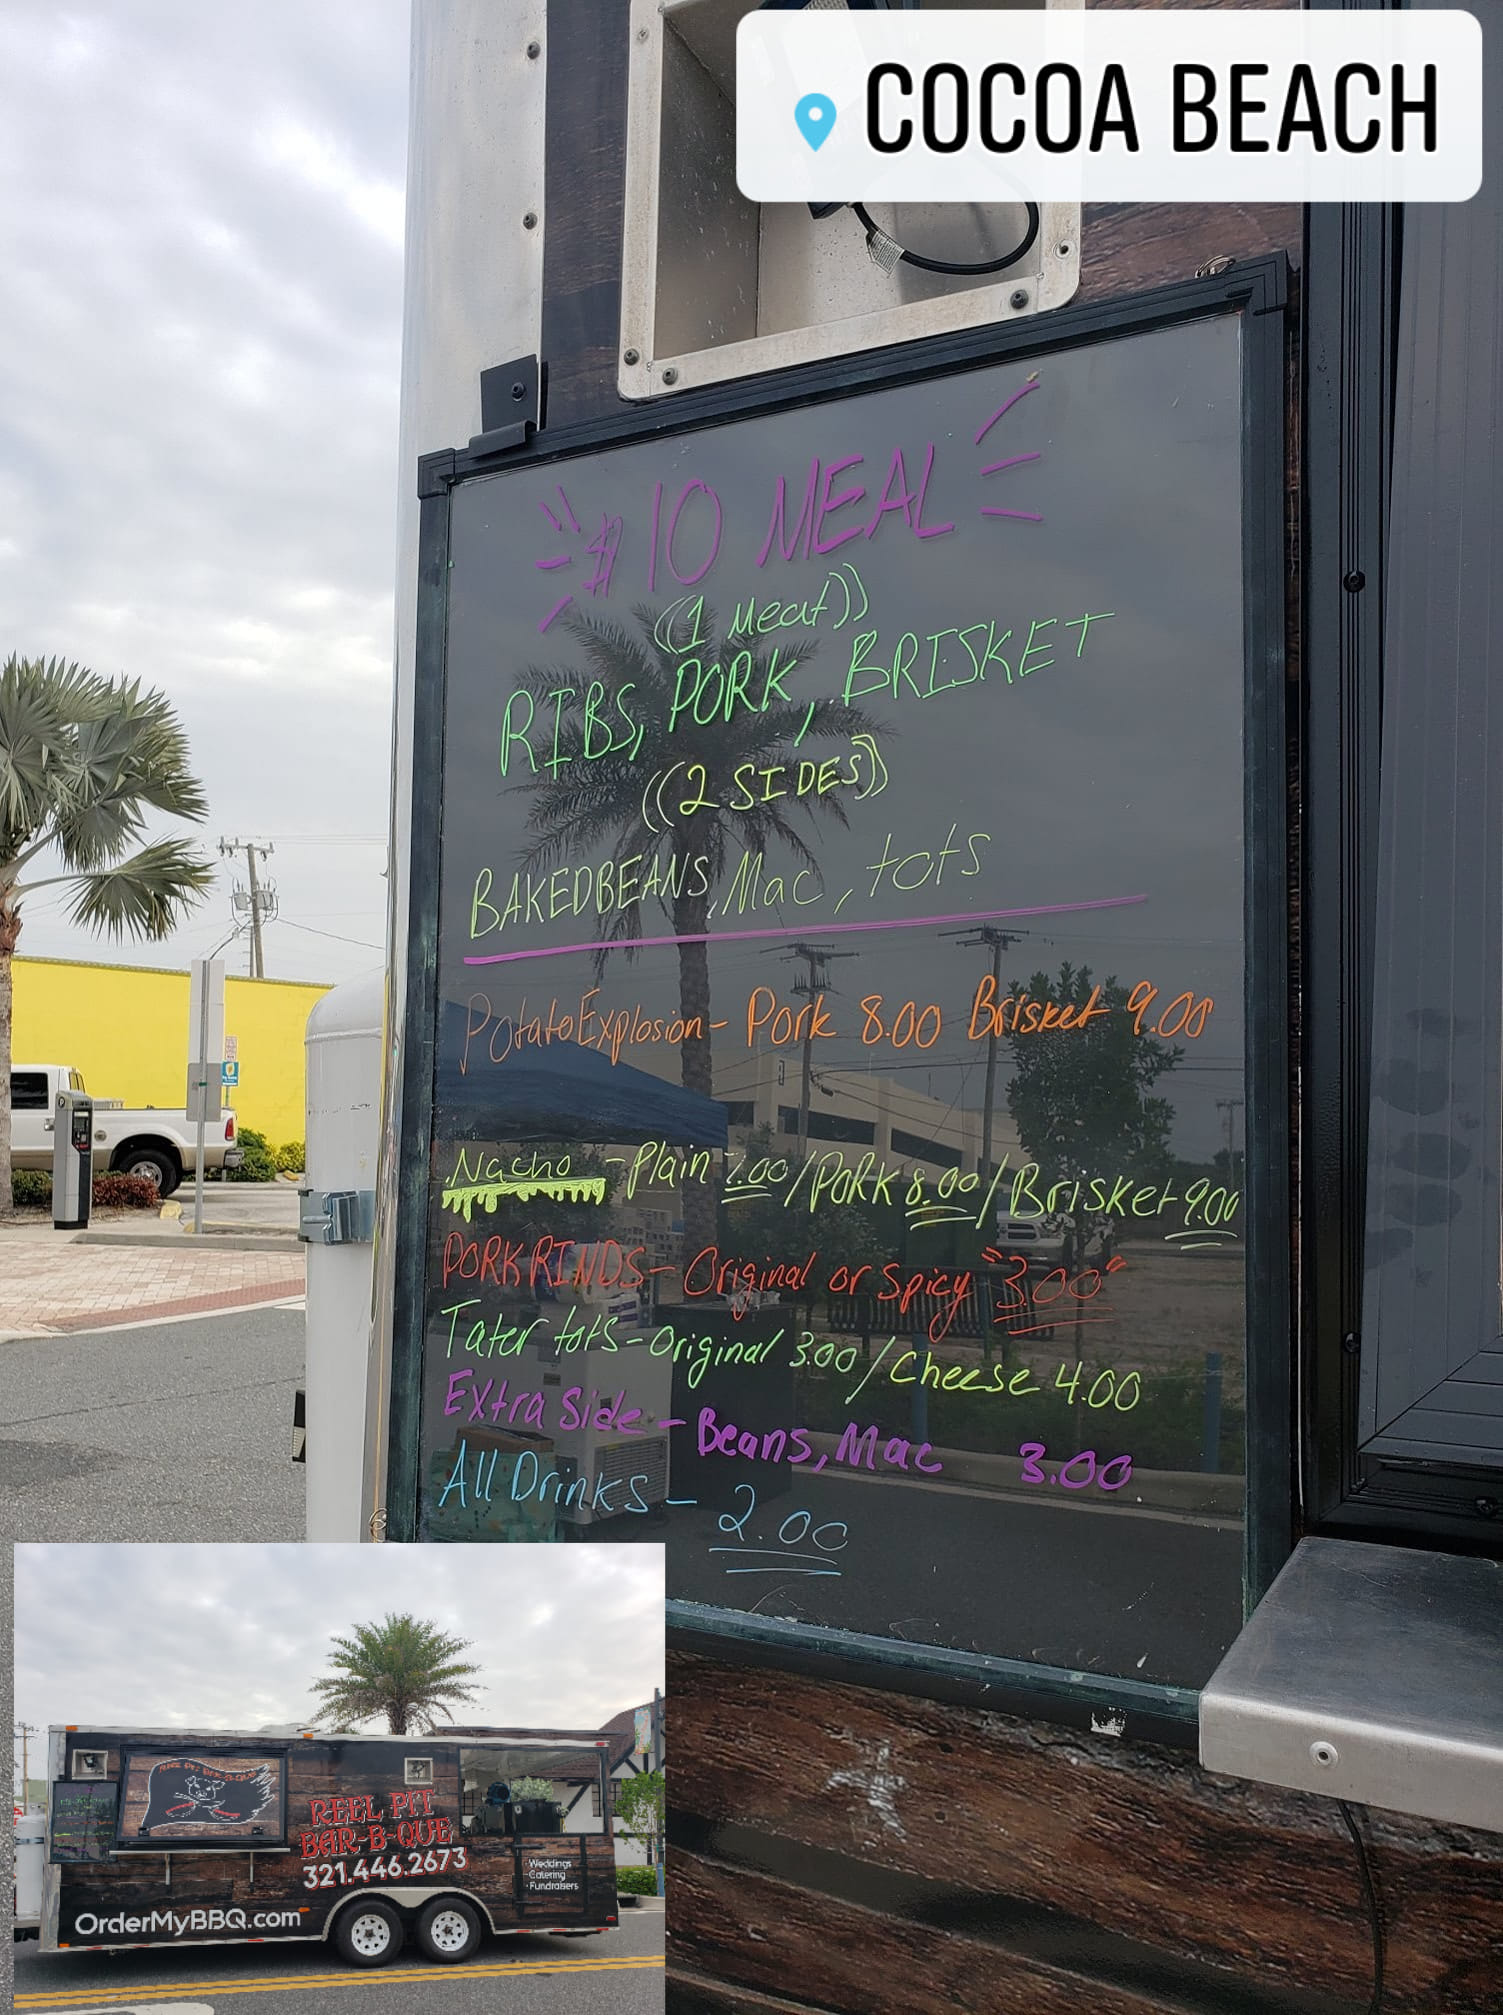 COCOA BEACH
$10 MEAL
((1 Meat))
RIBS, PORK, BRISKET
((2 SIDES))
BAKEDBEANS, Mac, tots
Potato Explosion - Pork 8.00 Brisket 9.00
Nacho - Plain 7.00 / Pork 8.00 / Brisket 9.00
PORK RINDS - Original or Spicy "3.00"
Tater tots - Original 3.00 / Cheese 4.00
Extra Side - Beans, Mac 3.00
All Drinks - 2.00
REEL PIT
BAR-B-QUE
321.446.2673
OrderMyBBQ.com
· Weddings
· Catering
· Fundraisers